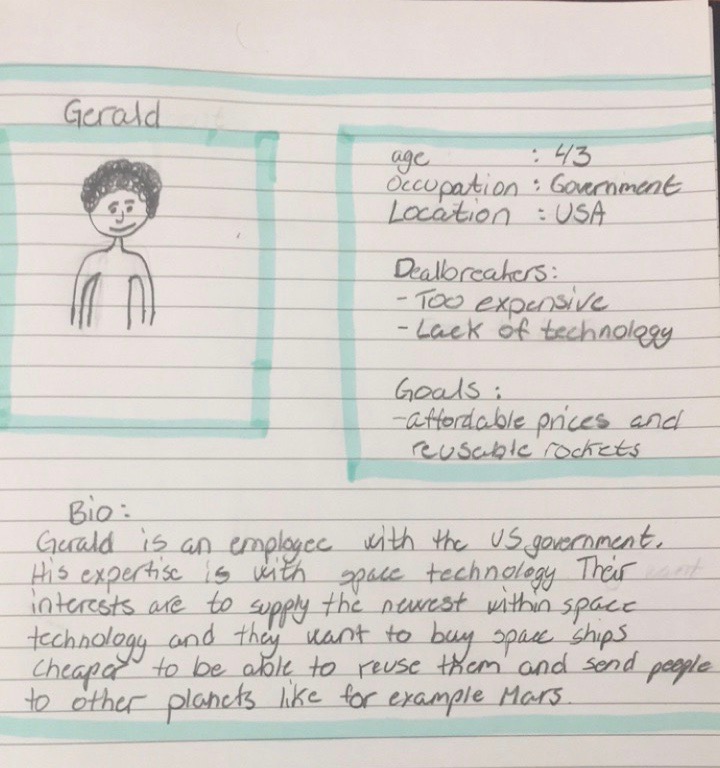 Gerald
age : 43
Occupation : Government
Location : USA
Dealbreakers:
- Too expensive
- Lack of technology
Goals :
- affordable prices and
reusable rockets
Bio :
Gerald is an employee with the US government.
His expertise is with space technology Their want
interests are to supply the newest within space
technology and they want to buy space ships
cheaper to be able to reuse them and send people
to other planets like for example Mars.